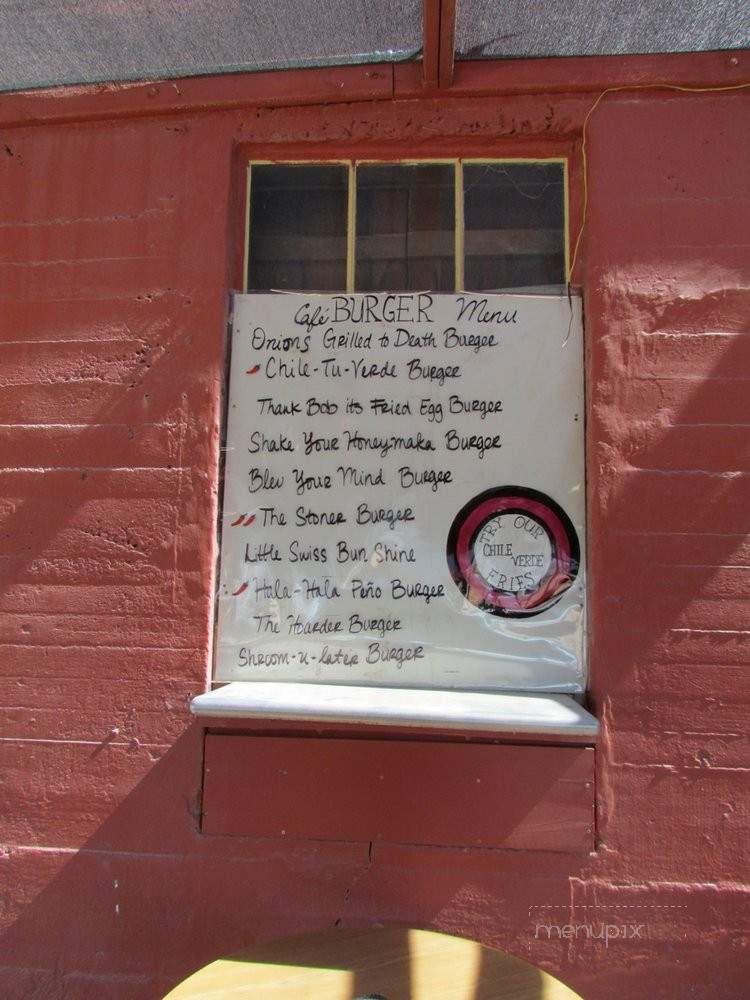 Café BURGER Menu
Onions Grilled to Death Burger
Chile-Tu-Verde Burger
Thank Bob its Fried Egg Burger
Shake Your Honeymaka Burger
Bleu Your Mind Burger
The Stoner Burger
Little Swiss Bun Shine
Hala-Hala Peño Burger
The Hoarder Burger
Shroom-u-later Burger
TRY OUR
CHILE
VERDE
FRIES
menupix